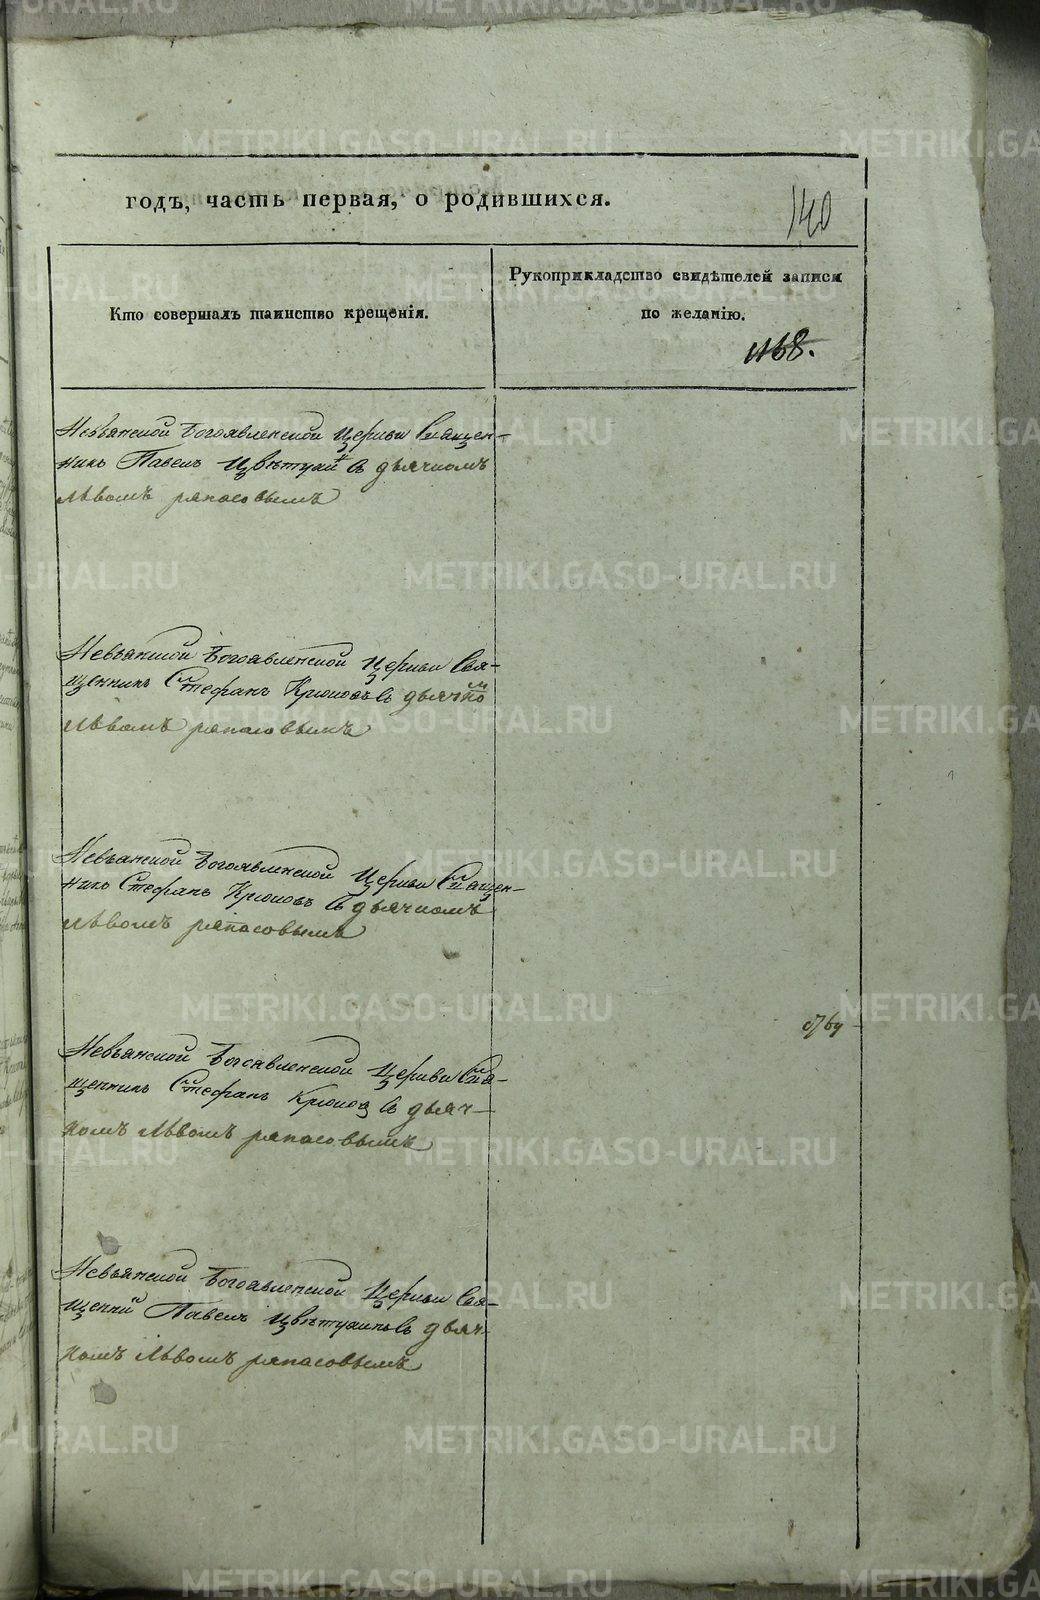 годъ, часть первая, о родившихся.
140
Кто совершалъ таинство крещенія.
Рукоприкладство свидѣтелей записи
по желанію.
1168.
Невьянской Богоявленской Церкви Священ-
никъ Павелъ Цвѣтухи съ дьячкомъ
Львомъ ряпасовымъ
Невьянской Богоявленской Церкви Свя-
щенникъ Стефанъ Крюковъ съ дьячкомъ
Львомъ ряпасовымъ
Невьянской Богоявленской Церкви Священ-
никъ Стефанъ Крюковъ съ дьячкомъ
Львомъ ряпасовымъ
Невьянской Богоявленской Церкви Свя-
щенникъ Стефанъ Крюковъ съ дьяч-
комъ Львомъ ряпасовымъ
Невьянской Богоявленской Церкви Свя-
щенни Павелъ Цвѣтухинъ съ дьяч-
комъ Львомъ ряпасовымъ
METRIKI.GASO-URAL.RU